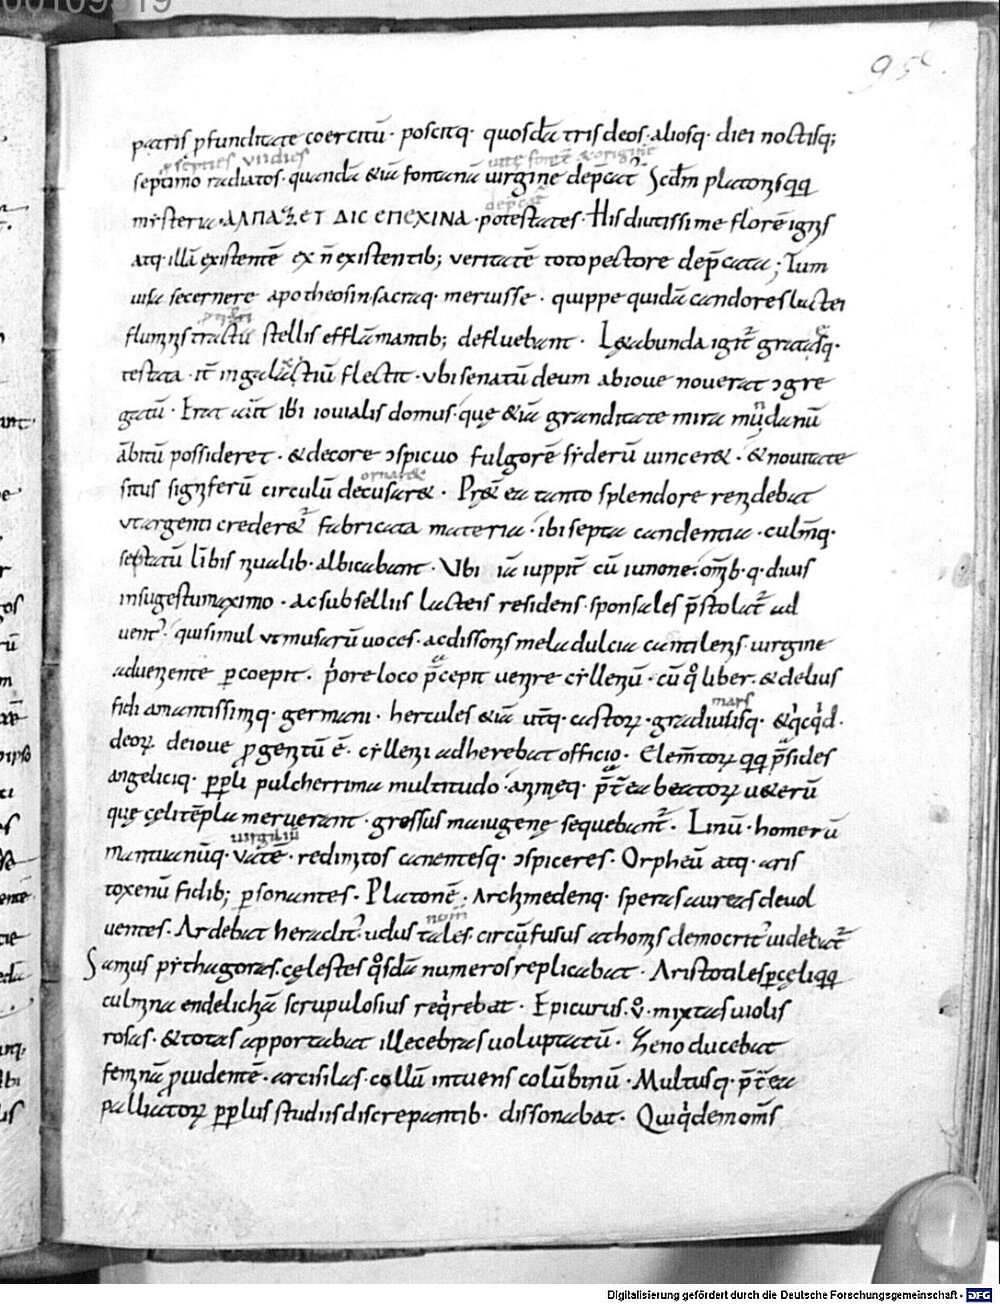 00109519
95
patris pfunditate coercitū· poscitq· quosdā trisdeos· aliosq· diei noctisq;
septies
septimo radiatos· quandā &iā fontanā uirgine dep̄cat᷑ Scdm platonisqq
uitę fontē & origine
mẏsteria· ΑΠΑΞ ΕΤ ΔΙС ЄΠЄΧΙΝΑ· potestates· His diutissime florē ignis
atq· illā existentē ex n̄ existentib; ueritatē toto pectore dep̄cata; Tum
uisa secernere apotheosin sacraq· meruisse· quippe quidā candores lactei
fluminis tractū stellis efflāmantib; defluebant· Lętabunda igit᷑ gratasq·
testata· it̄ in galactiū flectit· ubi senatū deum abioue nouerat ɔgre
gatū· Erat aūt ibi iouialis domus· quę &iā granditate mira mundanū
ābitū possideret· & decore ɔspicuo fulgorē sẏderū uincer&· & nouitate
ornar&
situs signiferū circulū decusar&· Pr& ea tanto splendore renidebat
ut argenti creder& fabricata materia· ibi septa candentia· culmiq·
septatū libis niualib· albicabant· Ubi iā iuppit̄ cū iunone· omib· q· diuis
in sugestu maximo· ac subselliis lacteis residens· sponsales p̄stolat᷑ ad
uent᷒· qui simul ut musarū uoces· ac dissonis mela dulcia cantilenis· uirgine
adueniente pcoepit· p̍ore loco p̄cepit uenire cẏlleniū· cū q̊ liber· & delius
mars
fidi amantissimiq· germani· hercules &iā ut̄q· castorꝝ· gradiuisq· & q̍cq̍d·
deorꝝ deioue ꝓgenitū ē· cẏllenii adherebat officio· Elem̄torꝝ qq p̄sides
angeliciq· ppli pulcherrima multitudo· animeq· p̄t̄ ea beatorꝝ ueterū
quę cęli tēpla meruerant· gressus maiugenę sequebant᷑· Linū· homerū
uirgiliū
mantuanūq· uatē· redimitos canentesq· ɔspiceres· Orpheū atq· aris
toxenū fidib; psonantes· Platonē· Archimedenq· speras aureas deuol
uentes· Ardebat heraclit᷒· udus tales· circūfusus athomis democrit᷒ uidebat᷑
Samus pẏthagoras· cęlestes q̊sdā numeros replicabat· Aristotiles p cęli qq
culmina endelichiā scrupulosius req̍rebat· Epicurus· ů· mixtas uiolis
rosas· & totas apportabat illecebras uoluptatū· Zeno ducebat
feminā ꝓuidentē· arcisilas· collū intuens colūbinū· Multusq· p̄t̄ea
palliatorꝝ pplus studiis discrepantib· dissonabat· Qui q̍dem om̄s
Digitalisierung gefördert durch die Deutsche Forschungsgemeinschaft - DFG